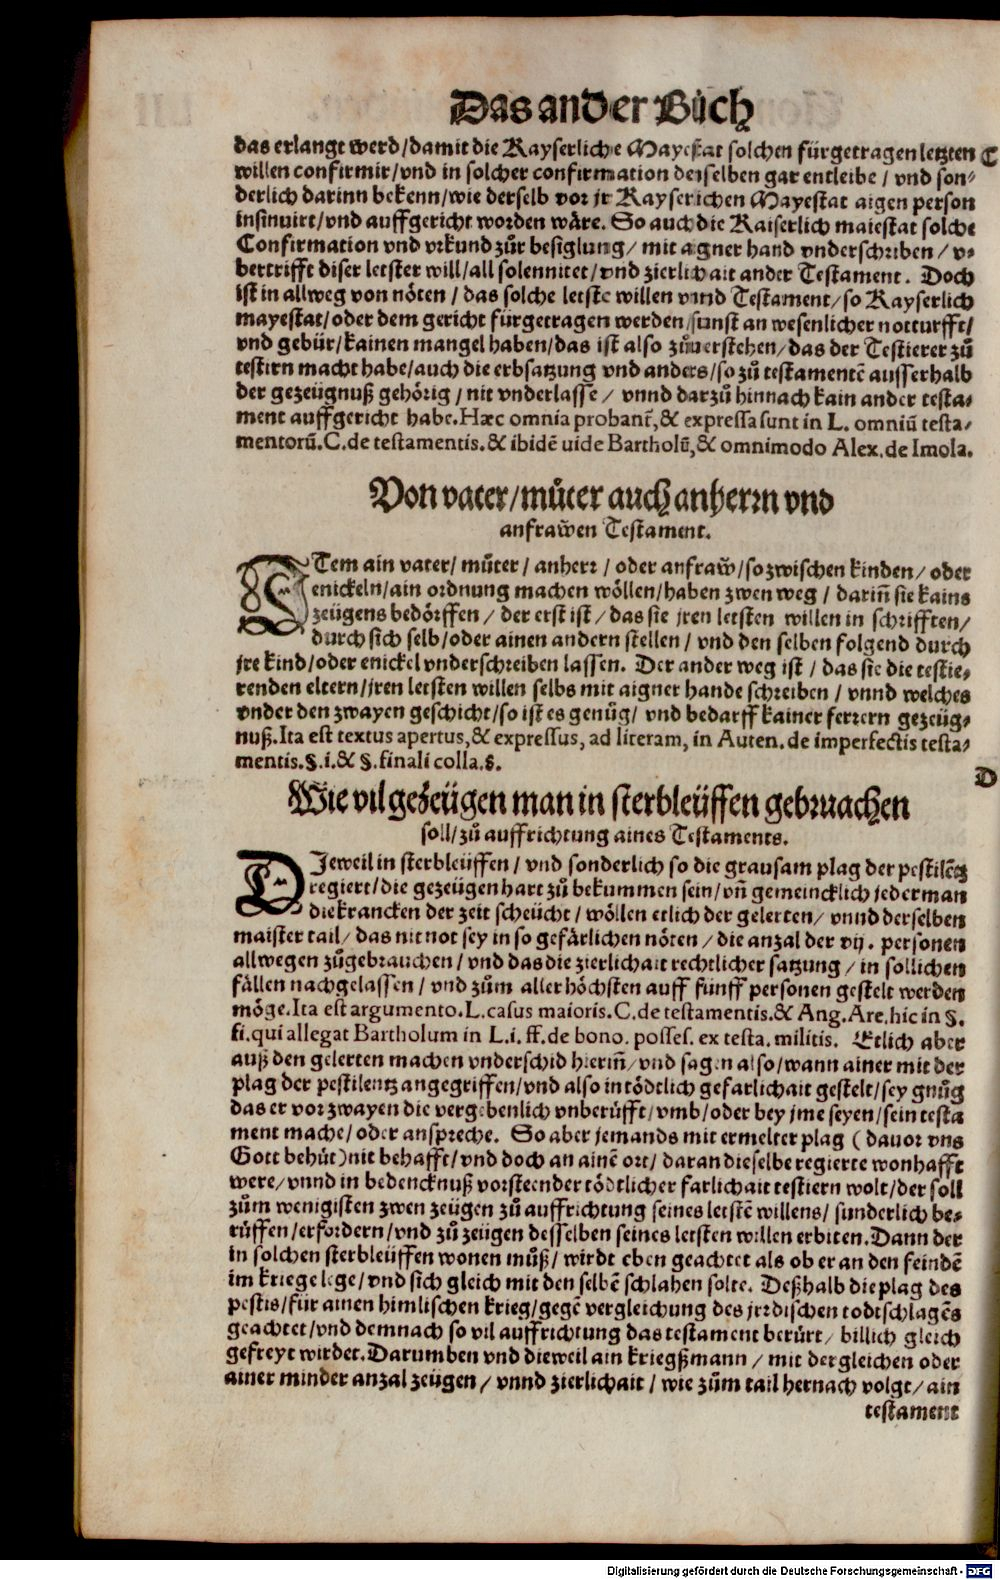 Das ander Bůch
das erlangt werd/damit die Kayserliche Mayestat solchen fürgetragen letzten C
willen confirmir/vnd in solcher confirmation derselben gar entleibe / vnd son-
derlich darinn bekenn/wie derselb vor jr Kayserichen Mayestat aigen person
insinuirt/vnd auffgericht worden wäre. So auch die Kaiserlich maiestat solche
Confirmation vnd vrkund zůr besiglung/ mit aigner hand vnderschriben / v-
bertrifft diser letster will/all solennitet/vnd zierlichait ander Testament. Doch
ist in allweg von nöten / das solche letste willen vnnd Testament/so Kayserlich
mayestat/oder dem gericht fürgetragen werden/sunst an wesenlicher notturfft/
vnd gebür/kainen mangel haben/das ist also zůuerstehen/das der Testierer zů
testirn macht habe/auch die erbsatzung vnd anders/so zů testamentē ausserhalb
der gezeügnuß gehörig / nit vnderlasse / vnnd darzů hinnach kain ander testa-
ment auffgericht habe.Hæc omnia probant̃,& expressa sunt in L. omniū testa-
mentorū.C.de testamentis.& ibidē uide Bartholū,& omnimodo Alex.de Imola.
Von vater/můter auch anherrn vnd
anfraẘen Testament.
ITem ain vater/ můter / anherr / oder anfraẘ/so zwischen kinden/ oder
enickeln/ain ordnung machen wöllen/haben zwen weg / dariñ sie kains
zeügens bedörffen / der erst ist / das sie jren letsten willen in schrifften/
durch sich selb/oder ainen andern stellen / vnd den selben folgend durch
jre kind/oder enickel vnderschreiben lassen. Der ander weg ist / das sie die testie-
renden eltern/jren letsten willen selbs mit aigner hande schreiben / vnnd welches
vnder den zwayen geschicht/so ist es genůg/ vnd bedarff kainer ferrern gezeüg-
nuß.Ita est textus apertus,& expressus, ad literam, in Auten.de imperfectis testa-
mentis.§.i.& §.finali colla.8.
D
Wie vil gezeügen man in sterbleüffen gebruachen
soll/zů auffrichtung aines Testaments.
DJeweil in sterbleüffen / vnd sonderlich so die grausam plag der pestilētz
regiert/die gezeügen hart zů bekummen sein/vñ gemeincklich jederman
die krancken der zeit scheücht / wöllen etlich der gelerten/ vnnd derselben
maister tail/ das nit not sey in so gefärlichen nöten / die anzal der vij. personen
allwegen zůgebrauchen / vnd das die zierlichait rechtlicher satzung / in sollichen
fällen nachgelassen / vnd zům aller höchsten auff fünff personen gestelt werden
möge.Ita est argumento.L.casus maioris.C.de testamentis.& Ang.Are.hic in §.
fi.qui allegat Bartholum in L.i.ff.de bono. posses. ex testa. militis. Etlich aber
auß den gelerten machen vnderschid hieriñ/vnd sagen also/wann ainer mit der
plag der pestilentz angegriffen/vnd also in tödtlich gefarlichait gestelt/sey gnůg
das er vor zwayen die vergebenlich vnberüfft/vmb/oder bey jme seyen/sein testa
ment mache/oder anspreche. So aber jemands mit ermelter plag ( dauor vns
Gott behüt)nit behafft/vnd doch an ainē ort/ daran dieselbe regierte wonhafft
were/vnnd in bedencknuß vorsteender tödtlicher farlichait testiern wolt/der soll
zům wenigisten zwen zeügen zů auffrichtung seines letstē willens/ sunderlich be-
rüffen/erfordern/vnd zů zeügen desselben seines letsten willen erbiten.Dann der
in solchen sterbleüffen wonen můß/ wirdt eben geachtet als ob er an den feindē
im kriege lege/vnd sich gleich mit den selbē schlahen solte. Deßhalb die plag des
pestis/für ainen himlischen krieg/gegē vergleichung des jrrdischen todtschlagēs
geachtet/vnd demnach so vil auffrichtung das testament berürt/ billich gleich
gefreyt wirdet.Darumben vnd dieweil ain kriegßmann / mit dergleichen oder
ainer minder anzal zeügen / vnnd zierlichait / wie zům tail hernach volgt/ ain
testament
Digitalisierung gefördert durch die Deutsche Forschungsgemeinschaft - DFG